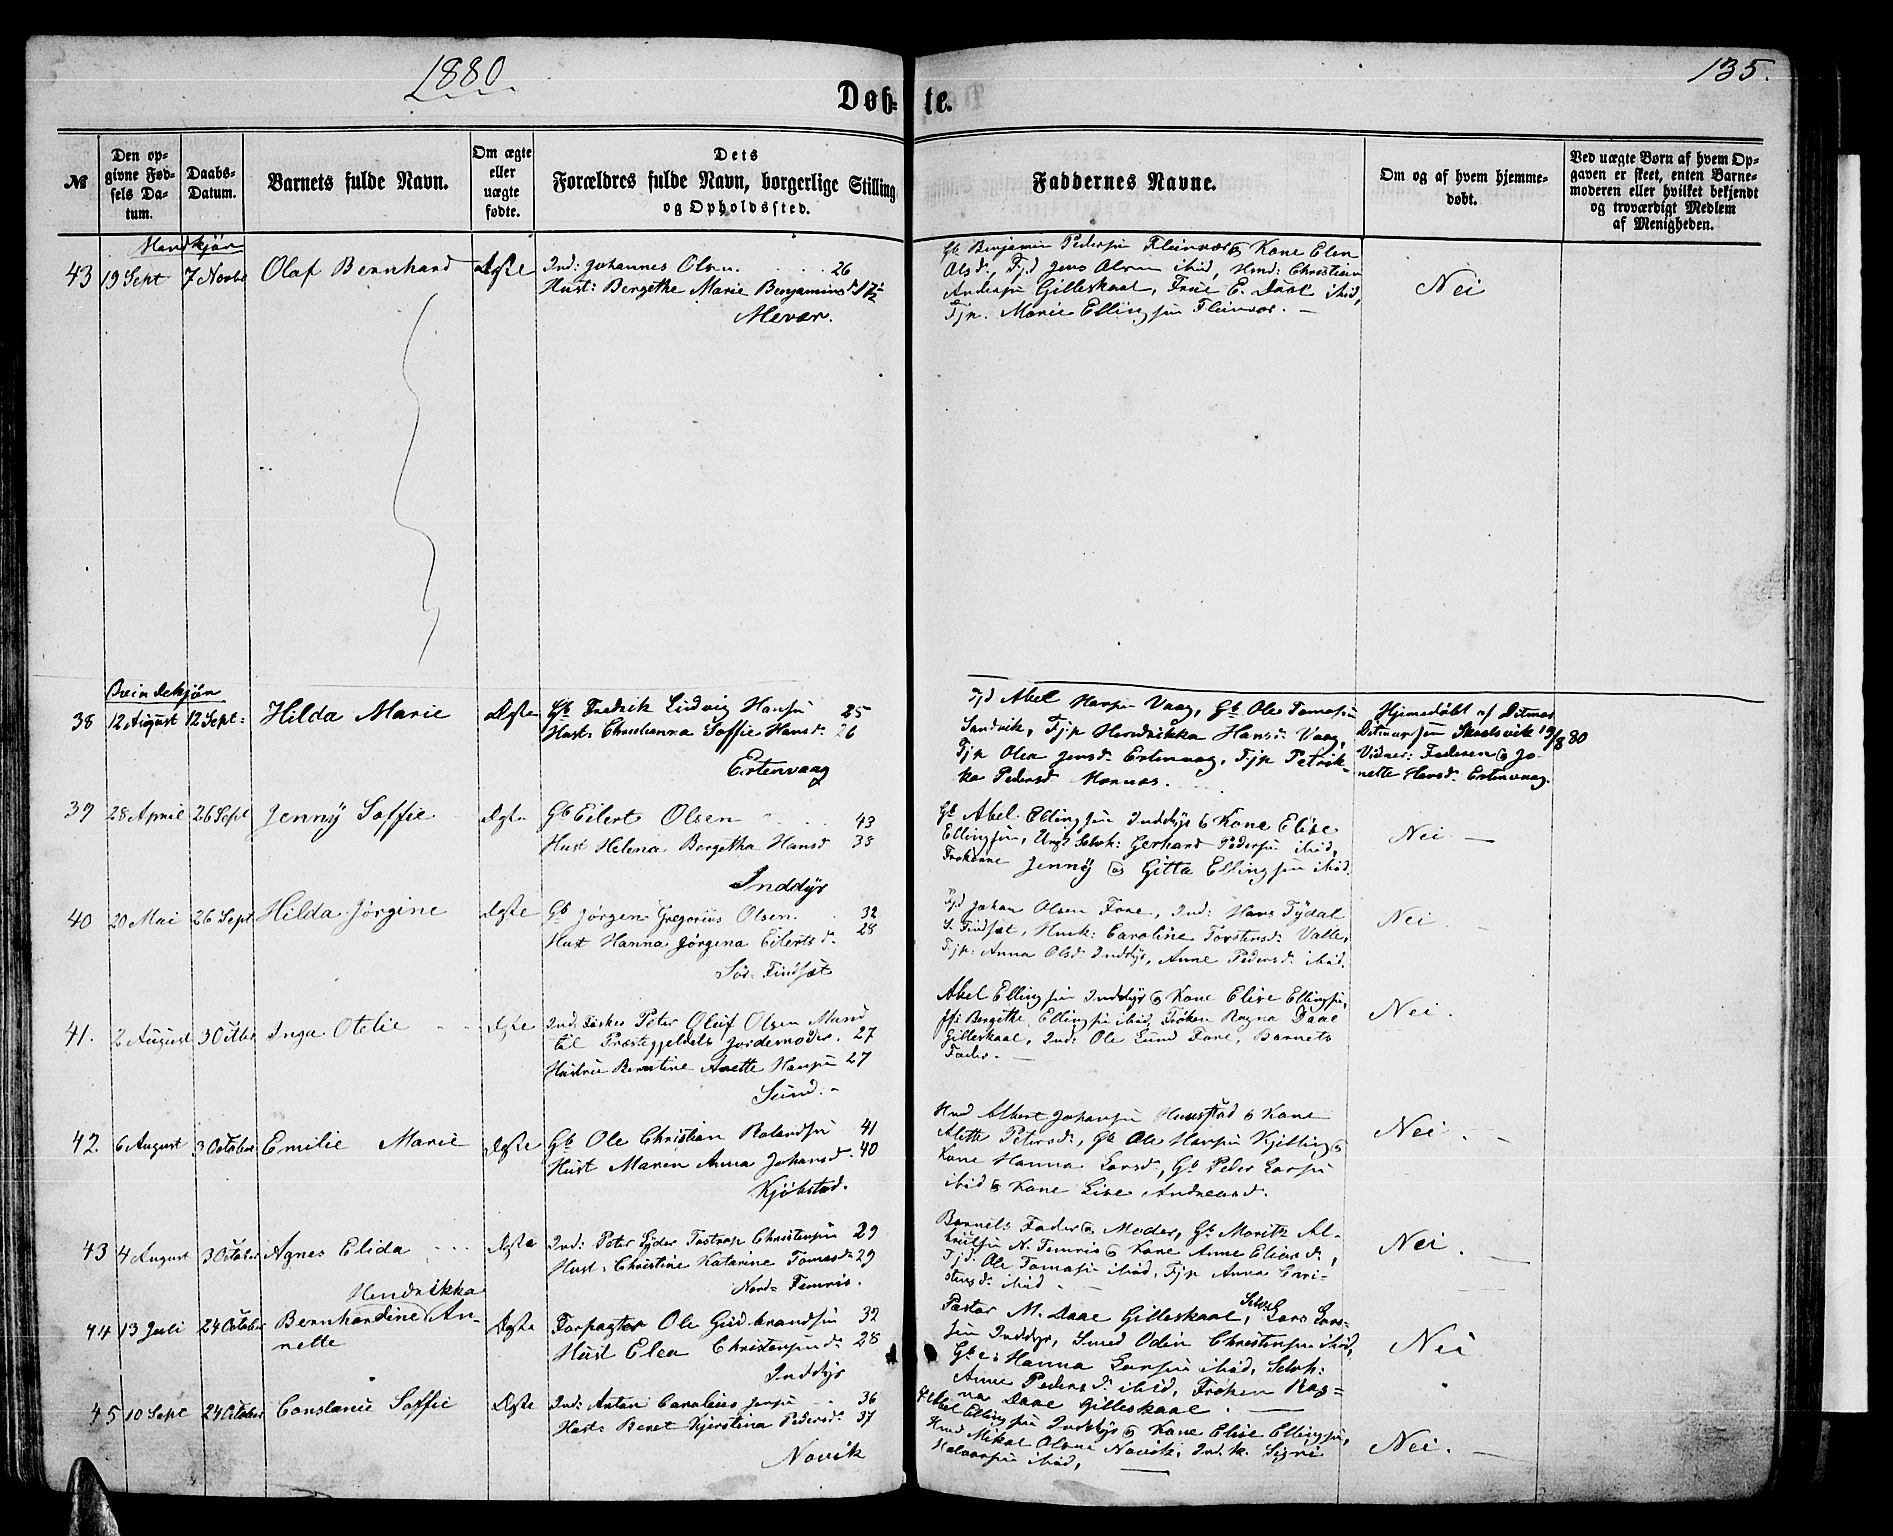 1880
135.
Døb-
te.
№
Den op-
givne Fød-
sels Da-
tum.
Daabs-
Datum.
Barnets fulde Navn.
Om ægte
eller
uægte
fødte.
Dets
Forældres fulde Navn, borgerlige Stilling
og Opholdssted.
Faddernes Navne.
Om og af hvem hjemme-
døbt.
Ved uægte Børn af hvem Op-
gaven er skeet, enten Barne-
moderen eller hvilket bekjendt
og troværdigt Medlem
af Menigheden.
Mandkjøn
43 19 Sept 7 Novbr Olaf Bernhard Ægte Ind: Johannes Olsen 26
Hust: Bergethe Marie Benjaminsd 17½
Mevær.
Gb Benjamin Pedersen Fleinvær og Kone Elen
Olsd., Tjd Jens Olsen ibid, Hmd: Christian
Andersen Gilleskaal, Frue E. Daae ibid,
Tjp. Marie Ellingsen Fleinvær.
Nei
Qvindekjøn
38 12 August 12 Sept: Hilda Marie Ægte Gb Fredrik Ludvig Hansen 25
Hust: Christianna Soffie Hansd. 26
Ertenvaag
Tjd Abel Hansen Vaag, Gb. Ole Tomasen
Sandvik, Tjp Hendrikka Hansd. Vaag,
Tjp Olea Jensd. Ertenvaag, Tjp Petrik-
ka Pedersd. Mornæs.
Hjemedøbt af Ditmar
Ditmarsen Skaalsvik 19/8 80
Vidner: Faderen og Jo-
nette Hansd. Ertenvaag.
39 28 April 26 Sept Jenny Soffie Ægte Gb Eilert Olsen 43
Hust Helena Bergetha Hansd 38
Inddyr
Gb Abel Ellingsen Inddyr & Kone Elise
Ellingsen, Ungk Selvh: Gerhard Pedersen ibid,
Frøknne Jenny og Gitta Ellingsen ibid.
Nei
40 20 Mai 26 Sept Hilda Jørgine Ægte Gb Jørgen Gregorius Olsen. 32
Hust Hanna Jørgena Eilertsd. 28
Sør-Findsæt
Tjd Johan Olsen Fore, Ind: Hans Tydal
S. Findsæt, Husk: Caroline Torstensd. Valle,
Tjp: Anna Olsd. Inddyr, Anne Pedersd. ibid.
Nei.
41. 2 August 3 Octbr Inga Otelie Ægte Ind: Fisker Peter Oluf Olsen Mand
til Præstegjeldets Jordemoder. 27
Hustru Berntine Anette Hansen 27
Sund.
Abel Ellingsen Inddyr & Kone Elise Ellingsen,
Bergethe Ellingsen ibid, Frøken Ragna Daae
Gilleskaal, Ind: Ole Lund Fore, Barnets
Fader.
Nei.
42. 6 August 3 October Emilie Marie Ægte Gb Ole Christian Rolandsen 41
Hust Maren Anna Johansd. 40
Kjøbstad.
Hmd Albert Johansen Hunstad & Kone
Alette Petersd., Gb Ole Hansen Kjelling og
Kone Hanna Larsd., Gb Peder Larsen
ibid & Kone Lise Andreasd.
Nei.
43 4 August 3 October Agnes Elida Ægte Ind: Peter Tostrup Christensen 29
Hust: Christine Katarine Tomasd. 29
Nord-Femris.
Barnets Fader og Moder, Gb. Moritz Al-
N. Femris & Kone Anne Eliasd.,
Tjd. Ole Tomasen ibid, Tjp Anna Cri-
stensd. ibid
Nei.
44 13 Juli 24 October Hendrikka
Bernhardine An-
nette
Ægte Forpagter Ole Gudbrandsen 32
Hust Elea Christensend. 28
Inddyr
Pastor M. Daae Gilleskaal, Selvh Lars Lars-
sen Inddyr, Smed Odin Christensen ibid,
Gbe: Hanna Larsen ibid, Selvh:
Anne Pedersd. ibid, Frøken Rag-
na Daae Gilleskaal.
Nei
45 10 Sept 24 October Constance Soffie Ægte Ind: Anton Carolius Jensen 36
Hust: Beret Kjerstina Pedersd. 37
Novik
Abel Ellingsen Inddyr & Kone Elise Ellingsen,
Hmd Mikal Olsen Novik, Ind. k. Signe
Halvorsen ibid,
Nei.